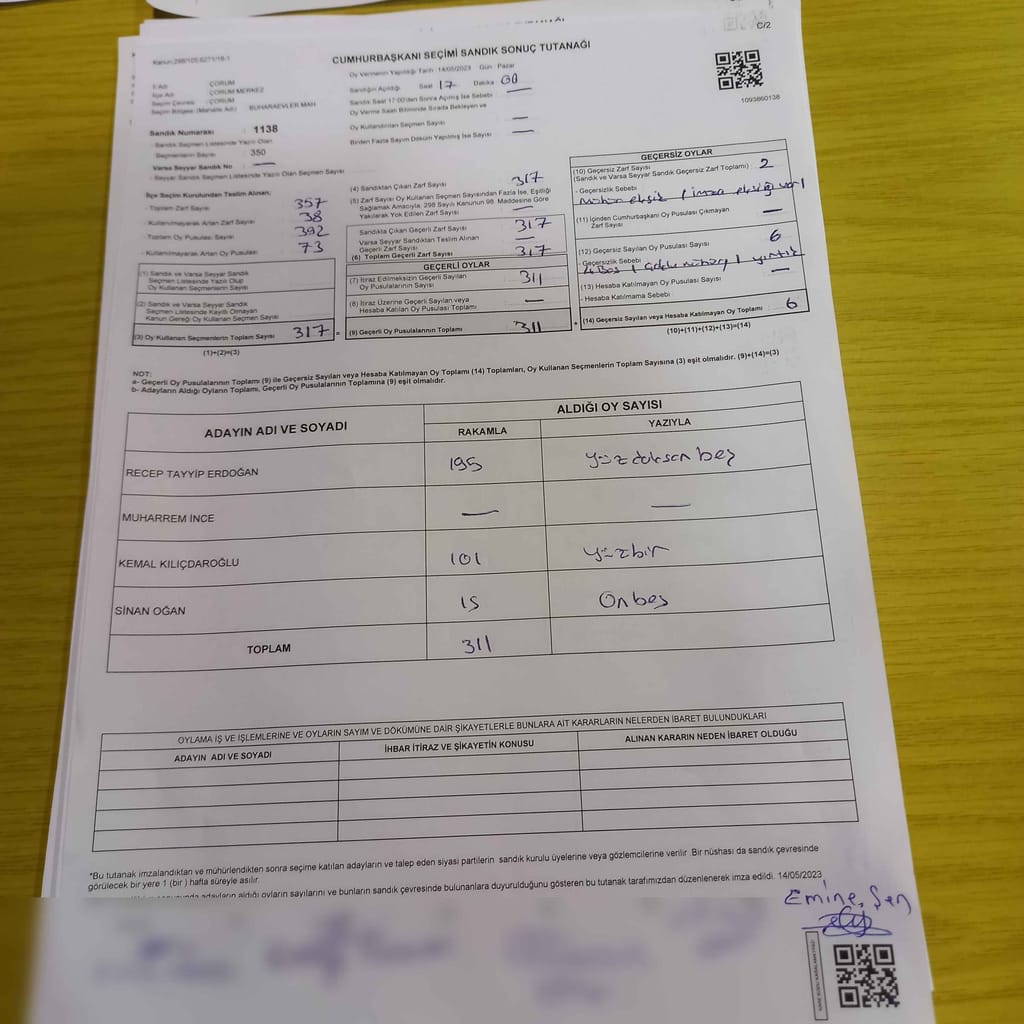 C/2
Kanun:298/105;6271/16-1
CUMHURBAŞKANI SEÇİMİ SANDIK SONUÇ TUTANAĞI
İl Adı : ÇORUM
İlçe Adı : ÇORUM MERKEZ
Seçim Çevresi : ÇORUM
Seçim Bölgesi (Mahalle Adı) : BUHARAEVLER MAH
Sandık Numarası : 1138
- Sandık Seçmen Listesinde Yazılı Olan
Seçmenlerin Sayısı : 350
Varsa Seyyar Sandık No : —
- Seyyar Sandık Seçmen Listesinde Yazılı Olan Seçmen Sayısı
Oy Vermenin Yapıldığı Tarih :14/05/2023 Gün : Pazar
Sandığın Açıldığı Saat 17 Dakika 00
Sandık Saat 17:00'den Sonra Açılmış İse Sebebi —
Oy Verme Saati Bitiminde Sırada Bekleyen ve
Oy Kullandırılan Seçmen Sayısı —
Birden Fazla Sayım Döküm Yapılmış İse Sayısı —
1093860138
İlçe Seçim Kurulundan Teslim Alınan;
- Toplam Zarf Sayısı 357
- Kullanılmayarak Artan Zarf Sayısı 38
- Toplam Oy Pusulası Sayısı 392
- Kullanılmayarak Artan Oy Pusulası 73
(1) Sandık ve Varsa Seyyar Sandık
Seçmen Listesinde Yazılı Olup
Oy Kullanan Seçmenlerin Sayısı
(2) Sandık ve Varsa Seyyar Sandık
Seçmen Listesinde Kayıtlı Olmayan
Kanun Gereği Oy Kullanan Seçmen Sayısı
(3) Oy Kullanan Seçmenlerin Toplam Sayısı 317 =
(1)+(2)=(3)
(4) Sandıktan Çıkan Zarf Sayısı 317
(5) Zarf Sayısı Oy Kullanan Seçmen Sayısından Fazla İse, Eşitliği
Sağlamak Amacıyla, 298 Sayılı Kanunun 98. Maddesine Göre
Yakılarak Yok Edilen Zarf Sayısı —
Sandıkta Çıkan Geçerli Zarf Sayısı 317
Varsa Seyyar Sandıktan Teslim Alınan
Geçerli Zarf Sayısı —
(6) Toplam Geçerli Zarf Sayısı 317
GEÇERLİ OYLAR
(7) İtiraz Edilmeksizin Geçerli Sayılan
Oy Pusulalarının Sayısı 311
(8) İtiraz Üzerine Geçerli Sayılan veya
Hesaba Katılan Oy Pusulası Toplamı —
(9) Geçerli Oy Pusulalarının Toplamı 311 +
GEÇERSİZ OYLAR
(10) Geçersiz Zarf Sayısı 2
(Sandık ve Varsa Seyyar Sandık Geçersiz Zarf Toplamı)
- Geçersizlik Sebebi
1 imza eksiği var
(11) İçinden Cumhurbaşkanı Oy Pusulası Çıkmayan
Zarf Sayısı —
(12) Geçersiz Sayılan Oy Pusulası Sayısı 6
- Geçersizlik Sebebi
4 Boş 1 yırtık
(13) Hesaba Katılmayan Oy Pusulası Sayısı —
- Hesaba Katılmama Sebebi
(14) Geçersiz Sayılan veya Hesaba Katılmayan Oy Toplamı 6
(10)+(11)+(12)+(13)=(14)
NOT:
a- Geçerli Oy Pusulalarının Toplamı (9) ile Geçersiz Sayılan veya Hesaba Katılmayan Oy Toplamı (14) Toplamları, Oy Kullanan Seçmenlerin Toplam Sayısına (3) eşit olmalıdır. (9)+(14)=(3)
b- Adayların Aldığı Oyların Toplamı, Geçerli Oy Pusulalarının Toplamına (9) eşit olmalıdır.
ADAYIN ADI VE SOYADI
ALDIĞI OY SAYISI
RAKAMLA YAZIYLA
RECEP TAYYİP ERDOĞAN 195 yüz doksan beş
MUHARREM İNCE — —
KEMAL KILIÇDAROĞLU 101 yüzbir
SİNAN OĞAN 15 Onbeş
TOPLAM 311
OYLAMA İŞ VE İŞLEMLERİNE VE OYLARIN SAYIM VE DÖKÜMÜNE DAİR ŞİKAYETLERLE BUNLARA AİT KARARLARIN NELERDEN İBARET BULUNDUKLARI
ADAYIN ADI VE SOYADI İHBAR İTİRAZ VE ŞİKAYETİN KONUSU ALINAN KARARIN NEDEN İBARET OLDUĞU
*Bu tutanak imzalandıktan ve mühürlendikten sonra seçime katılan adayların ve talep eden siyasi partilerin sandık kurulu üyelerine veya gözlemcilerine verilir. Bir nüshası da sandık çevresinde
görülecek bir yere 1 (bir ) hafta süreyle asılır.
adayların aldığı oyların sayılarını ve bunların sandık çevresinde bulunanlara duyurulduğunu gösteren bu tutanak tarafımızdan düzenlenerek imza edildi. 14/05/2023
Emine Şen